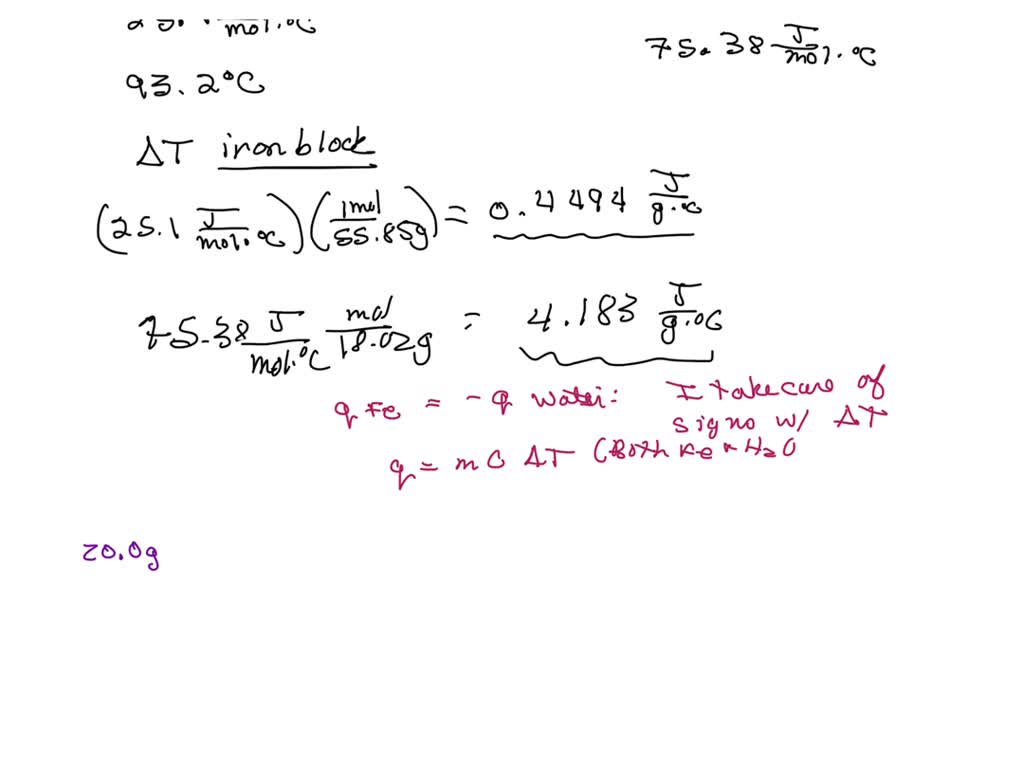 mol.°C
75.38 J/mol.°C
93.2°C
ΔT iron block
(25.1 J/mol.°C)(1mol/55.85g) = 0.4494 J/g.°C
75.38 J/mol.°C mol/18.02g = 4.183 J/g.°C
q Fe = -q water: I take care of
signs w/ ΔT
q = m C ΔT (Both Fe + H2O
20.0g